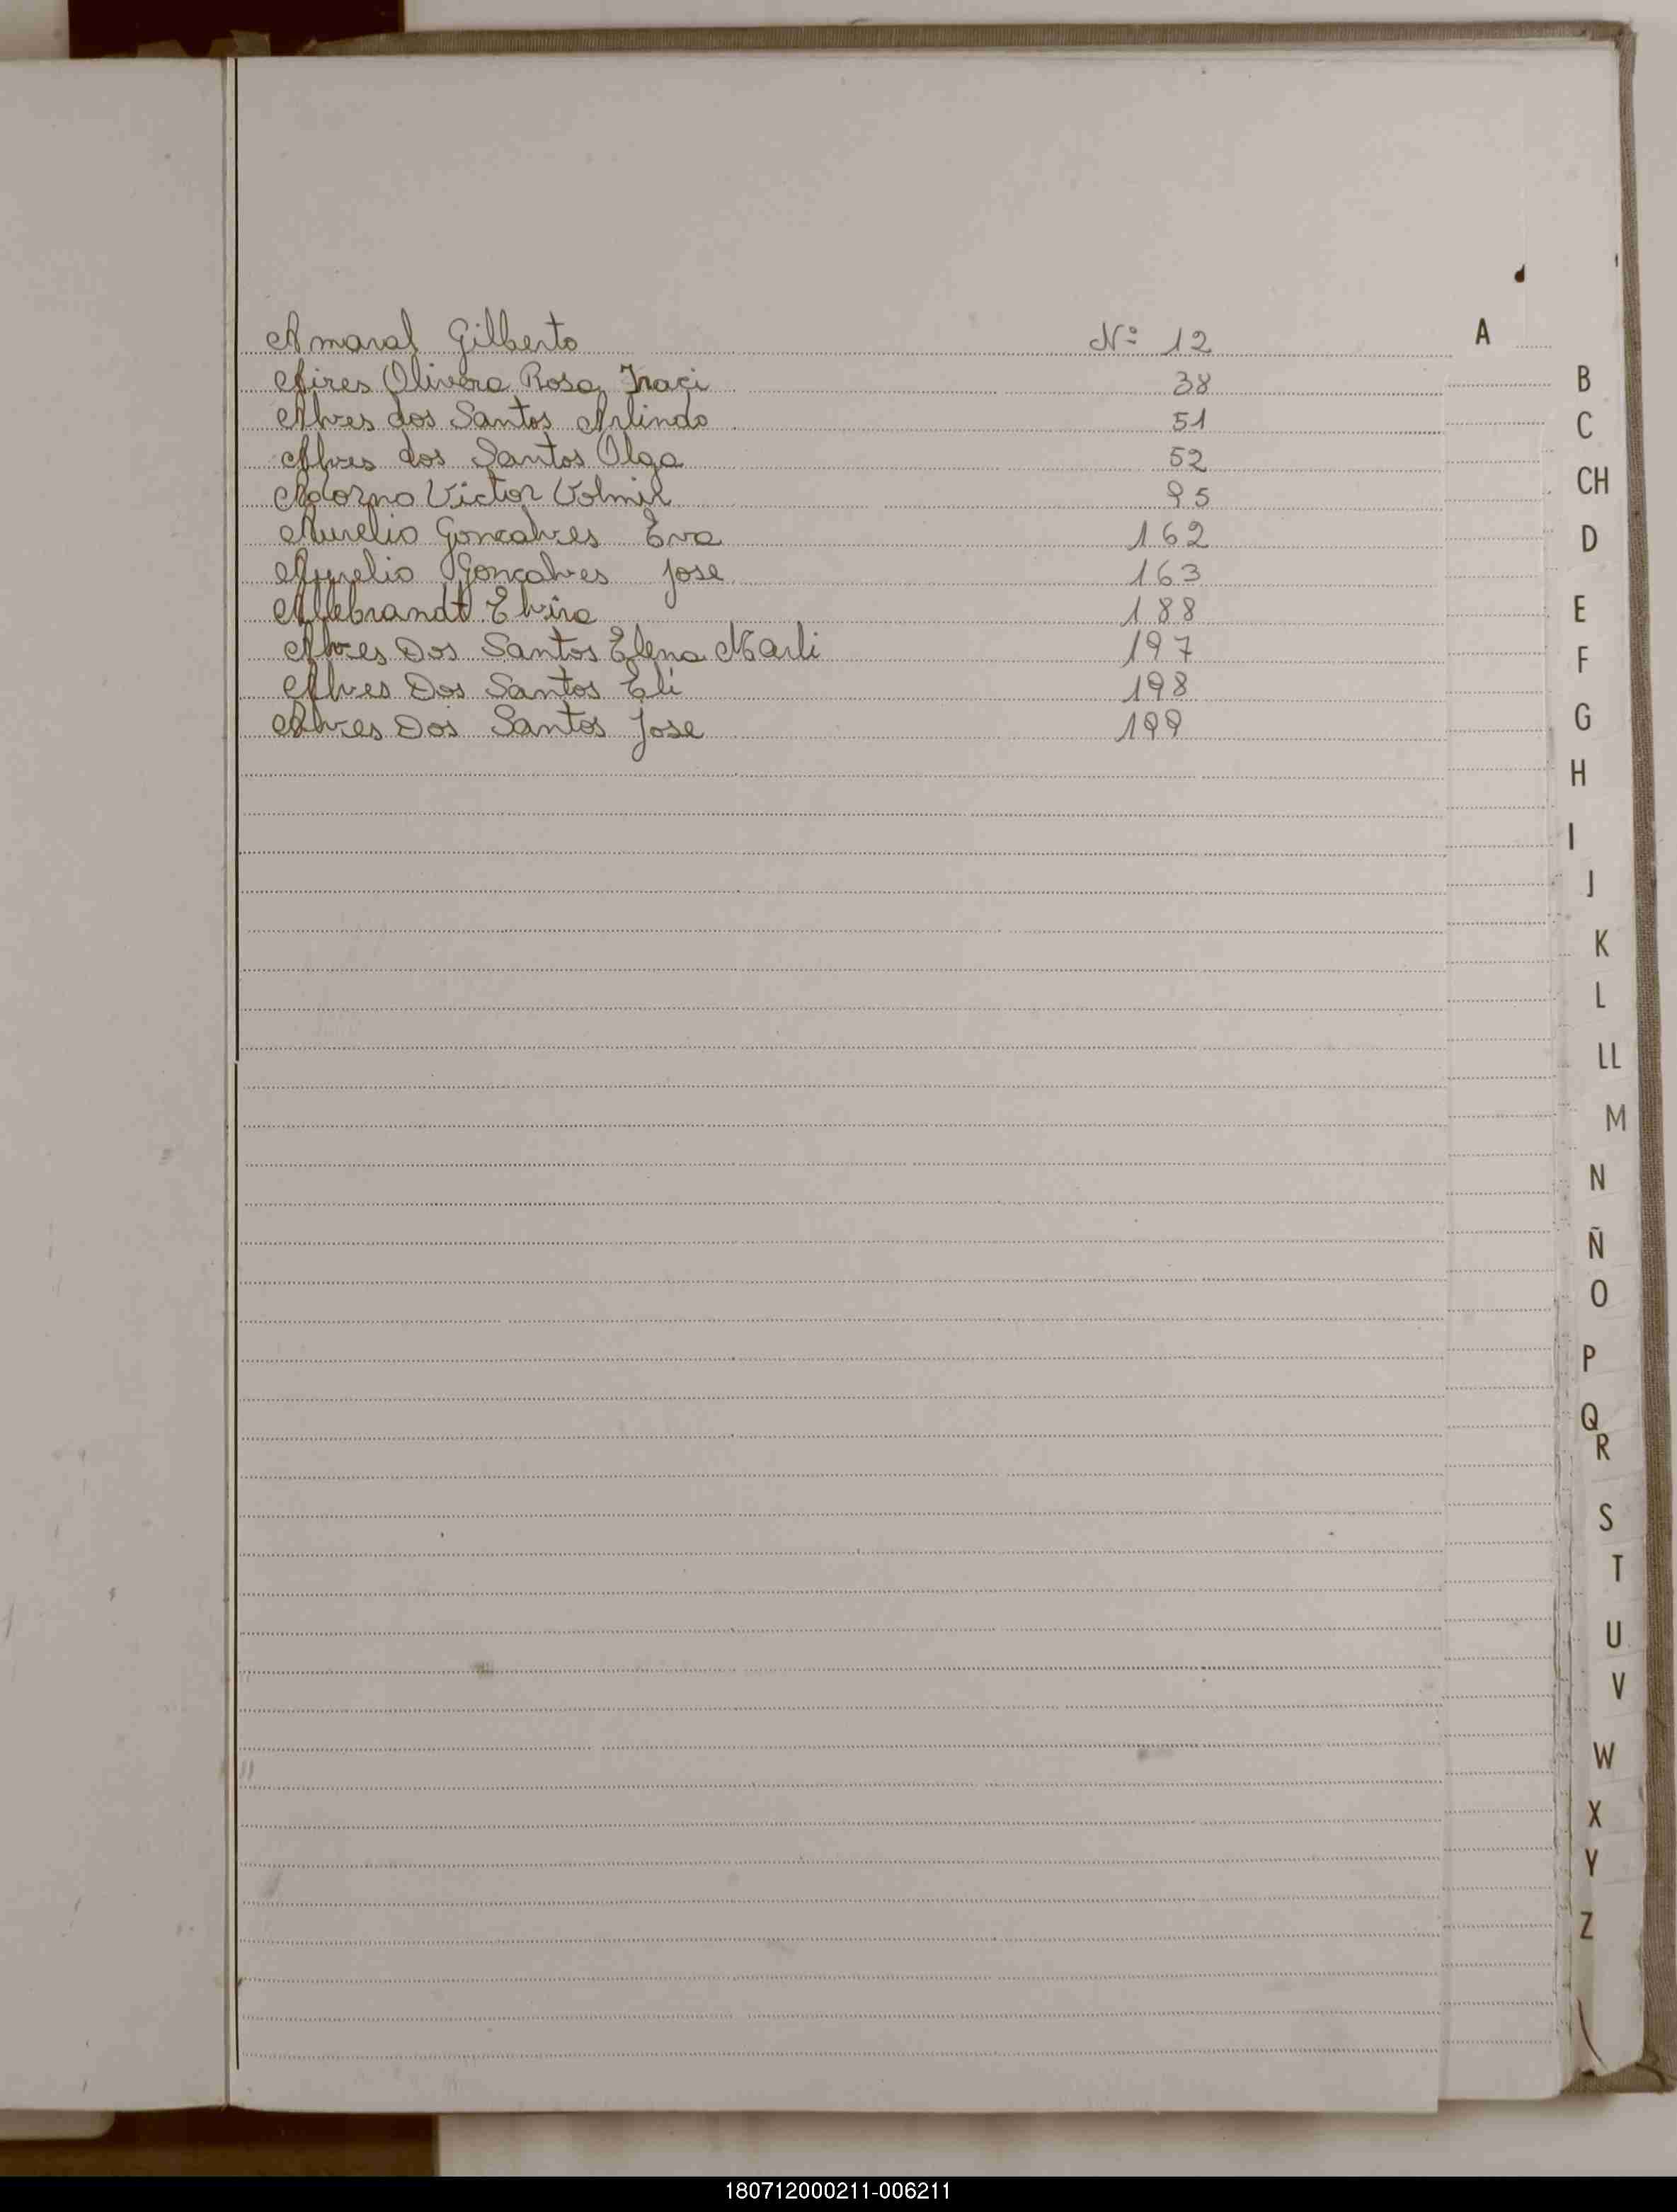 Amaral Gilberto Nº 12 A
Aires Olivera Rosa Iraci 38
Alves dos Santos Arlindo 51
Alves dos Santos Olga 52
Adorno Victor Volmir 95
Aurelio Goncalves Eva 162
Aurelio Gonçalves Jose 163
Allebrandt Elvira 188
Alves Dos Santos Elena Marli 197
Alves Dos Santos Eli 198
Alves Dos Santos Jose 199
B
C
CH
D
E
F
G
H
I
J
K
L
LL
M
N
Ñ
O
P
Q
R
S
T
U
V
W
X
Y
Z
180712000211-006211